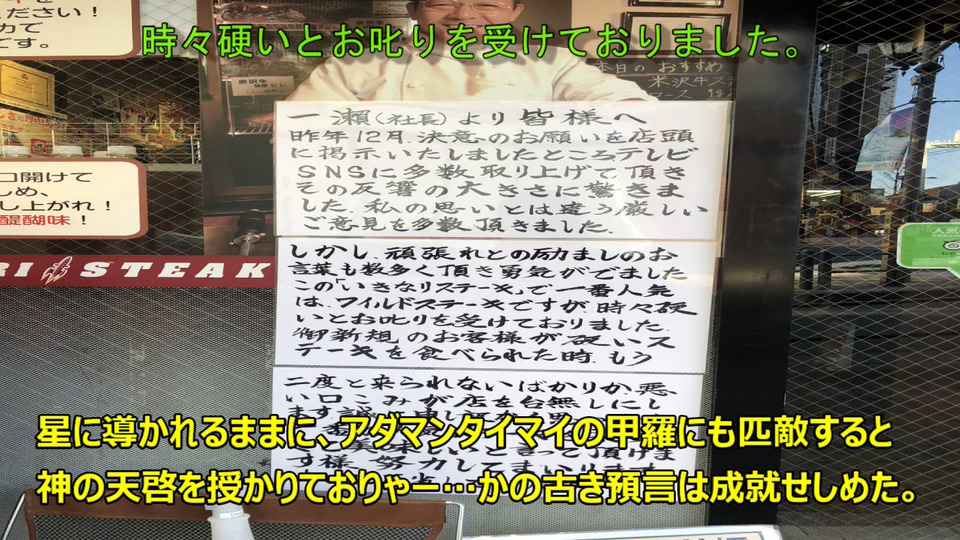 ください！
カで
です。
時々硬いとお叱りを受けておりました。
本日のおすすめ
米沢牛
一瀬（社長）より皆様へ
昨年12月、決意のお願いを店頭
に掲示いたしましたところテレビ
SNSに多数取り上げて頂き
その反響の大きさに驚きま
した。私の思いとは違う厳しい
ご意見を多数頂きました。
口開けて
しめ、
し上がれ！
醍醐味！
しかし、頑張れとの励ましのお
言葉も数多く頂き勇気がでました
この「いきなりステーキ」で一番人気
は、ワイルドステーキですが時々硬
いとお叱りを受けておりました。
御新規のお客様が硬いス
テーキを食べられた時、もう
RI STEAK
人気
二度と来られないばかりか、悪
い口こみが店を台無しにし
星に導かれるままに、アダマンタイマイの甲羅にも匹敵すると
す様、努力してまいります
神の天啓を授かりておりゃー…かの古き預言は成就せしめた。